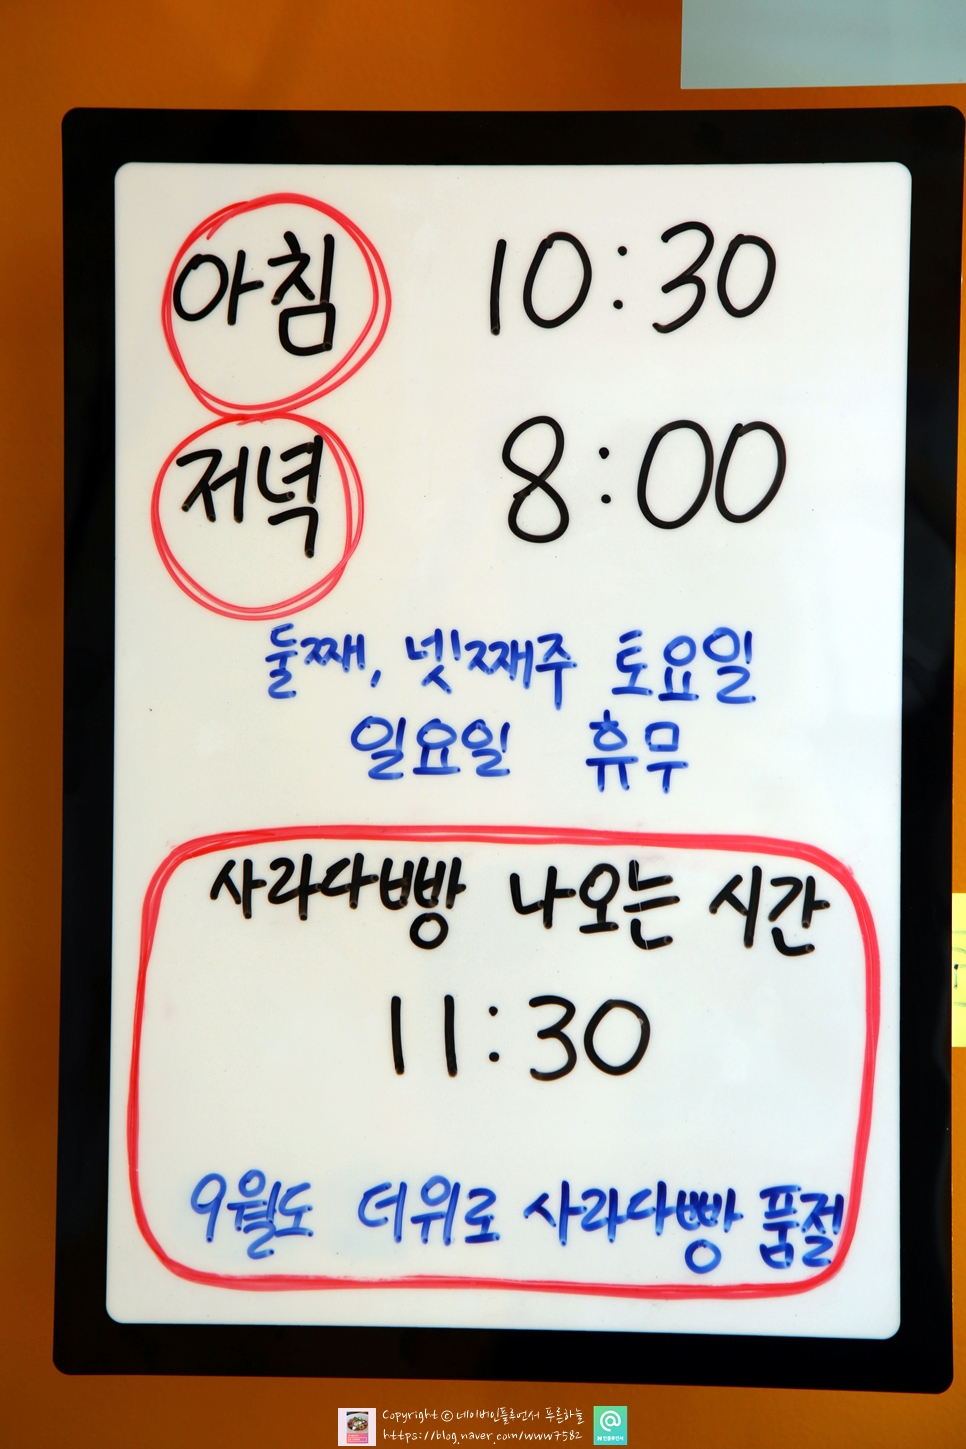 아침 10:30
저녁 8:00
둘째, 넷째주 토요일
일요일 휴무
사라다빵 나오는 시간
11:30
9월도 더위로 사라다빵 품절
Copyright © 네이버인플루언서 푸른하늘
https://blog.naver.com/www7582